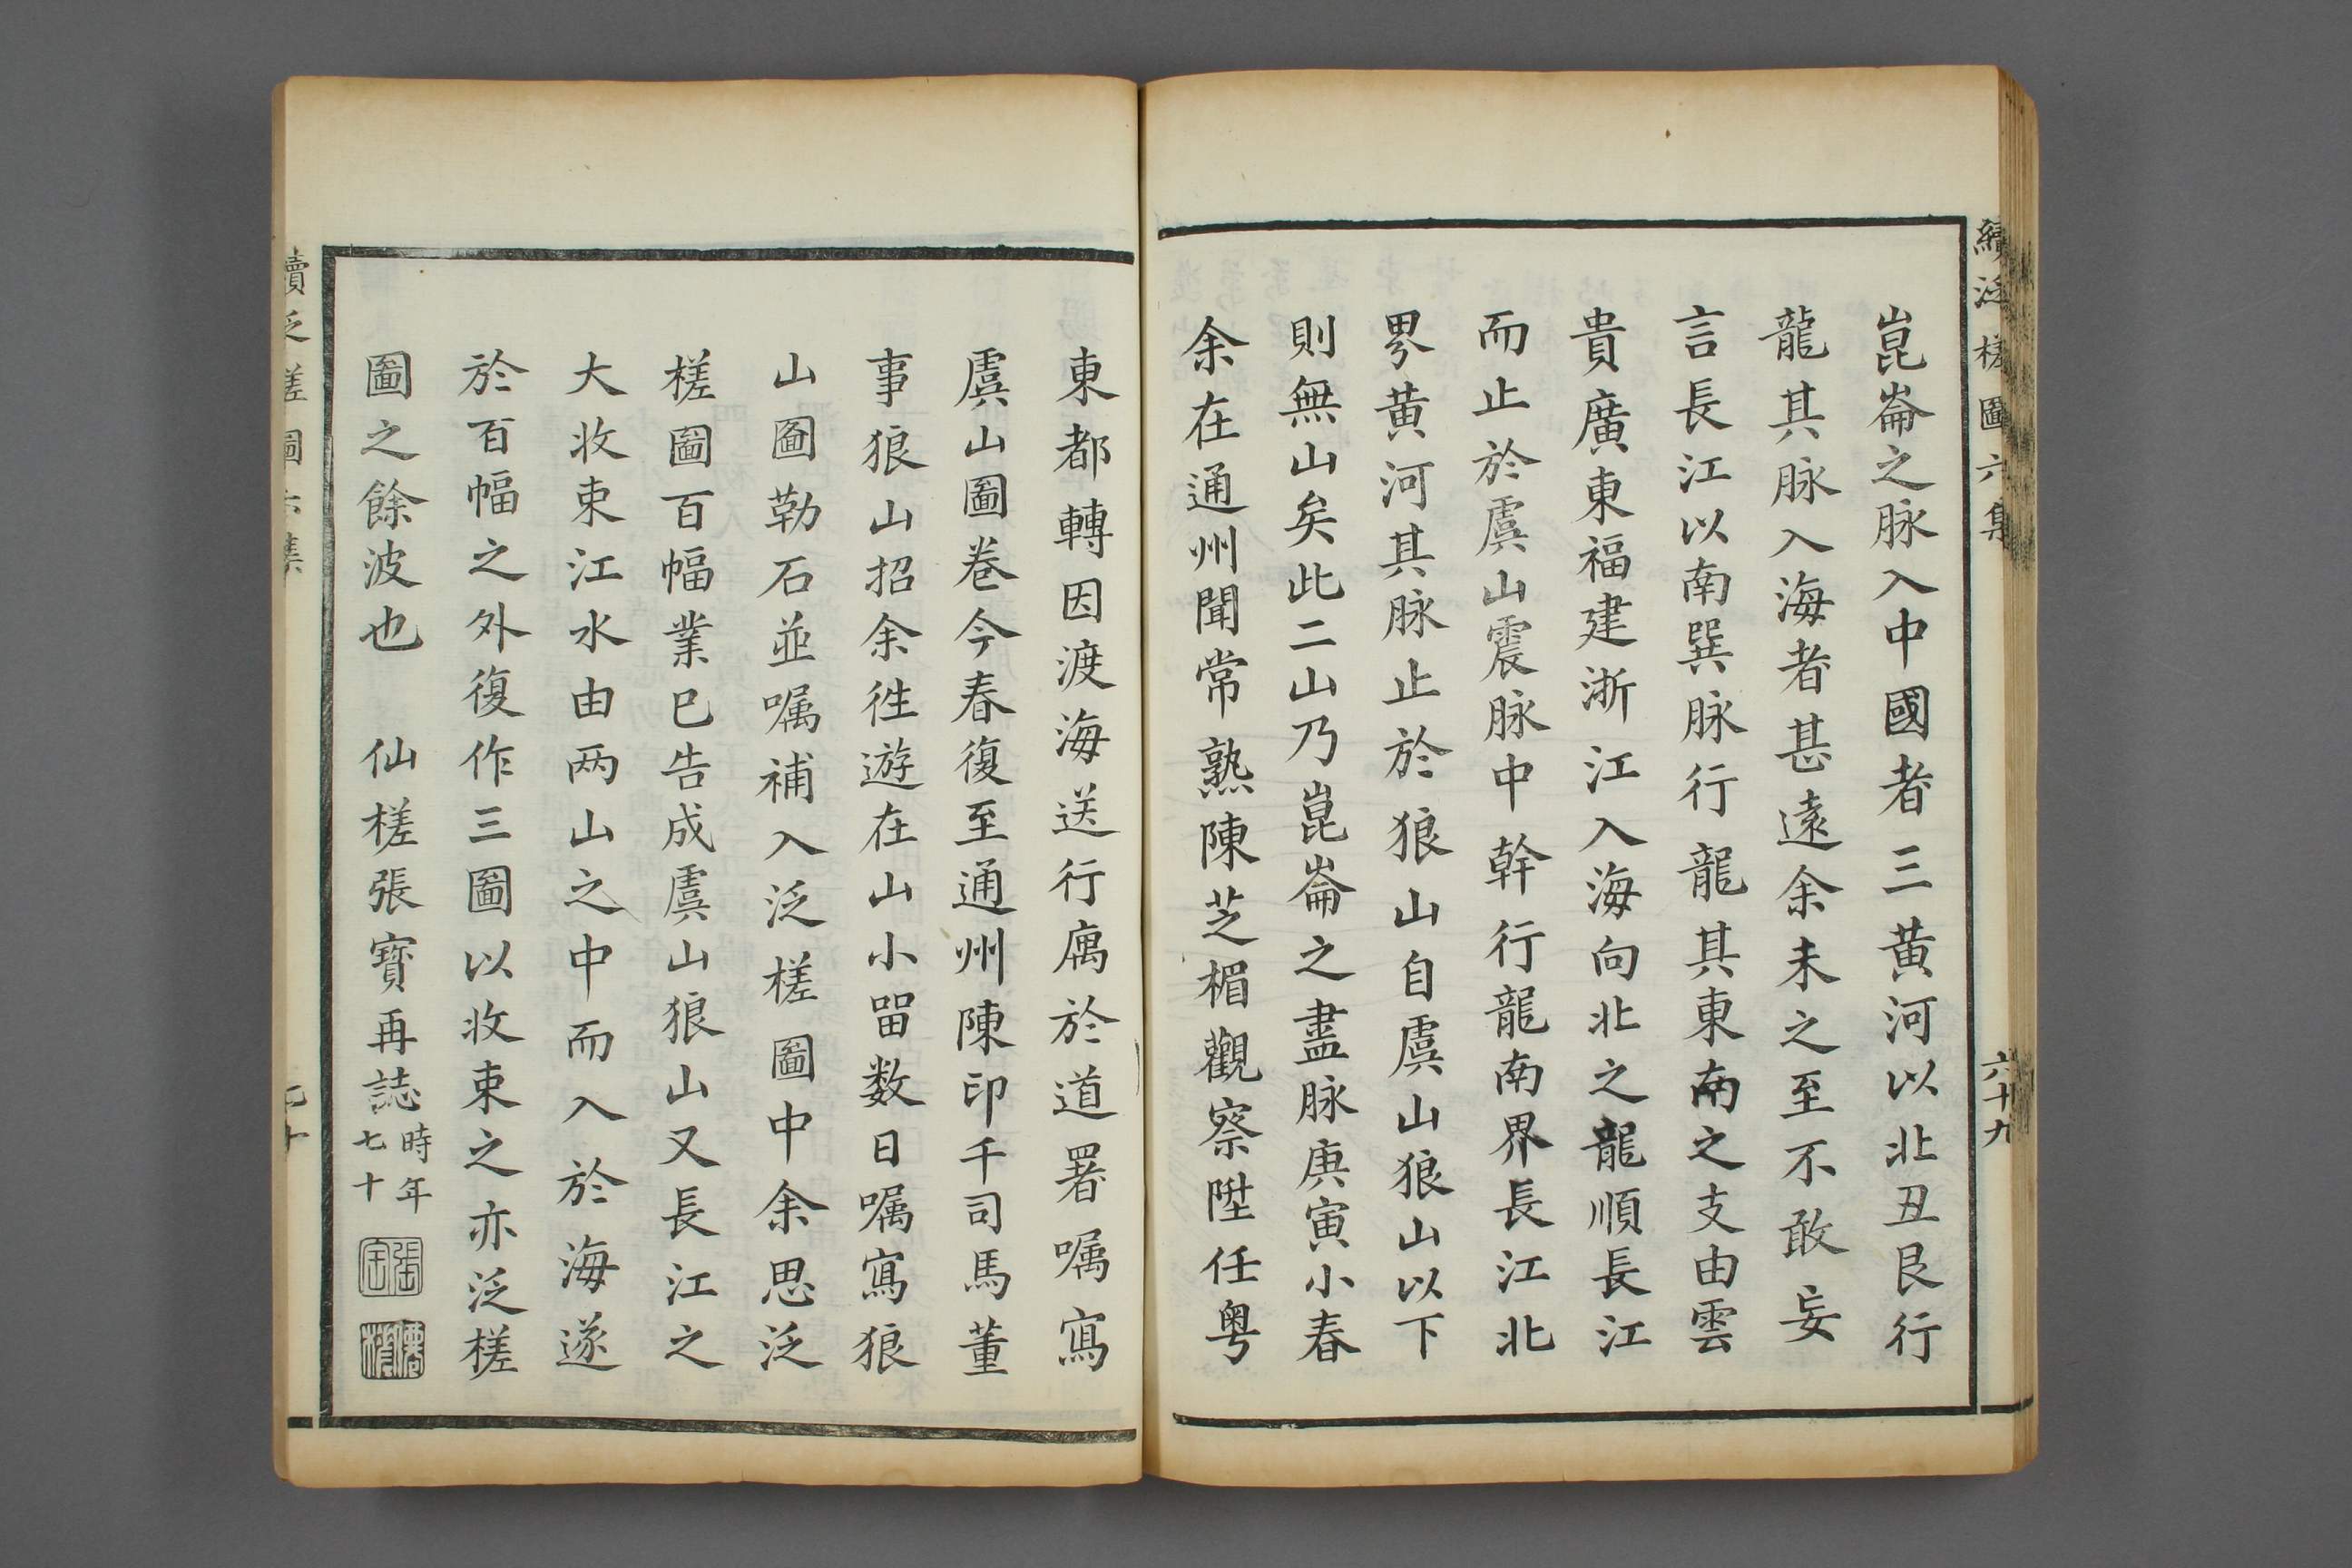 續泛槎圖六集
六十九
崑崙之脉入中國者三黃河以北丑艮行
龍其脉入海者甚遠余未之至不敢妄
言長江以南巽脉行龍其東南之支由雲
貴廣東福建浙江入海向北之龍順長江
而止於虞山震脉中幹行龍南界長江北
界黃河其脉止於狼山自虞山狼山以下
則無山矣此二山乃崑崙之盡脉庚寅小春
余在通州聞常熟陳芝楣觀察陞任粤
東都轉因渡海送行寓於道署嘱寫
虞山圖卷今春復至通州陳印千司馬董
事狼山招余徃遊在山小畱数日嘱寫狼
山圖勒石並嘱補入泛槎圖中余思泛
槎圖百幅業已告成虞山狼山又長江之
大收束江水由两山之中而入於海遂
於百幅之外復作三圖以收束之亦泛槎
圖之餘波也　仙槎張寶再誌時年
七十
張寶
仙槎
續泛槎圖六集
七十